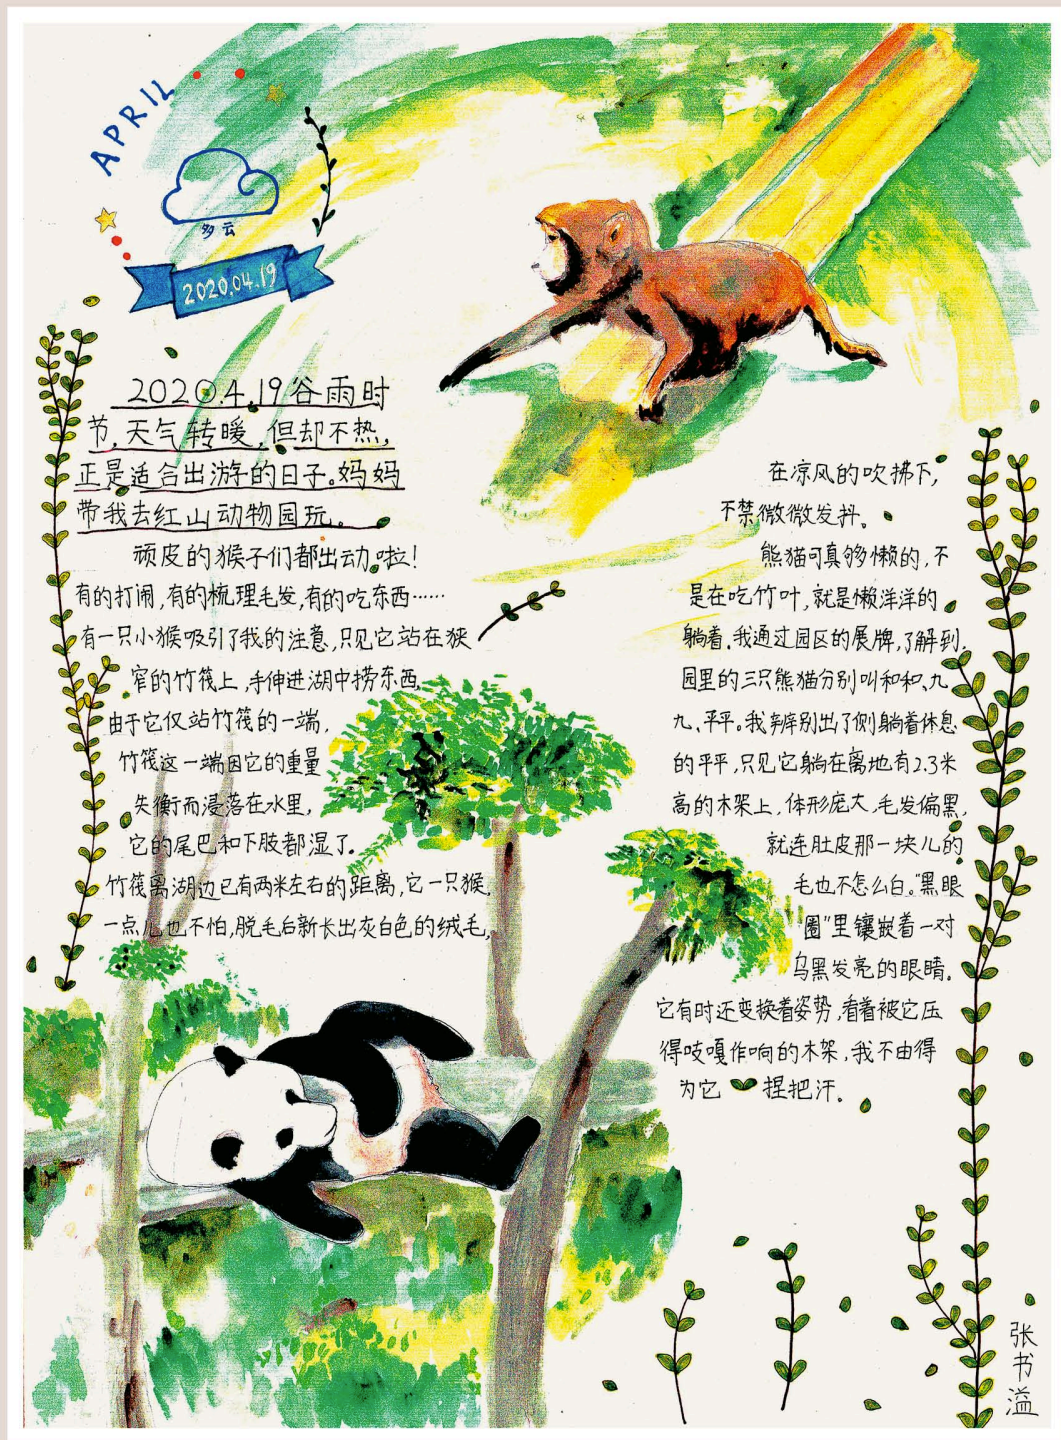 APRIL
多云
2020.04.19
2020.4.19谷雨时
节,天气转暖,但却不热,
正是适合出游的日子。妈妈
带我去红山动物园玩。
顽皮的猴子们都出动啦!
有的打闹,有的梳理毛发,有的吃东西……
有一只小猴吸引了我的注意,只见它站在狭
窄的竹筏上,手伸进湖中捞东西,
由于它仅站竹筏的一端,
竹筏这一端因它的重量
失衡而浸落在水里,
它的尾巴和下肢都湿了。
竹筏离湖边已有两米左右的距离,它一只猴,
一点儿也不怕,脱毛后新长出灰白色的绒毛,
在凉风的吹拂下,
不禁微微发抖。
熊猫可真够懒的,不
是在吃竹叶,就是懒洋洋的
躺着。我通过园区的展牌,了解到,
园里的三只熊猫分别叫和和、九
九、平平。我辨别出了侧躺着休息
的平平,只见它躺在离地有2.3米
高的木架上,体形庞大,毛发偏黑,
就连肚皮那一块儿的
毛也不怎么白。“黑眼
圈”里镶嵌着一对
乌黑发亮的眼睛。
它有时还变换着姿势,看着被它压
得吱嘎作响的木架,我不由得
为它捏把汗。
张书溢